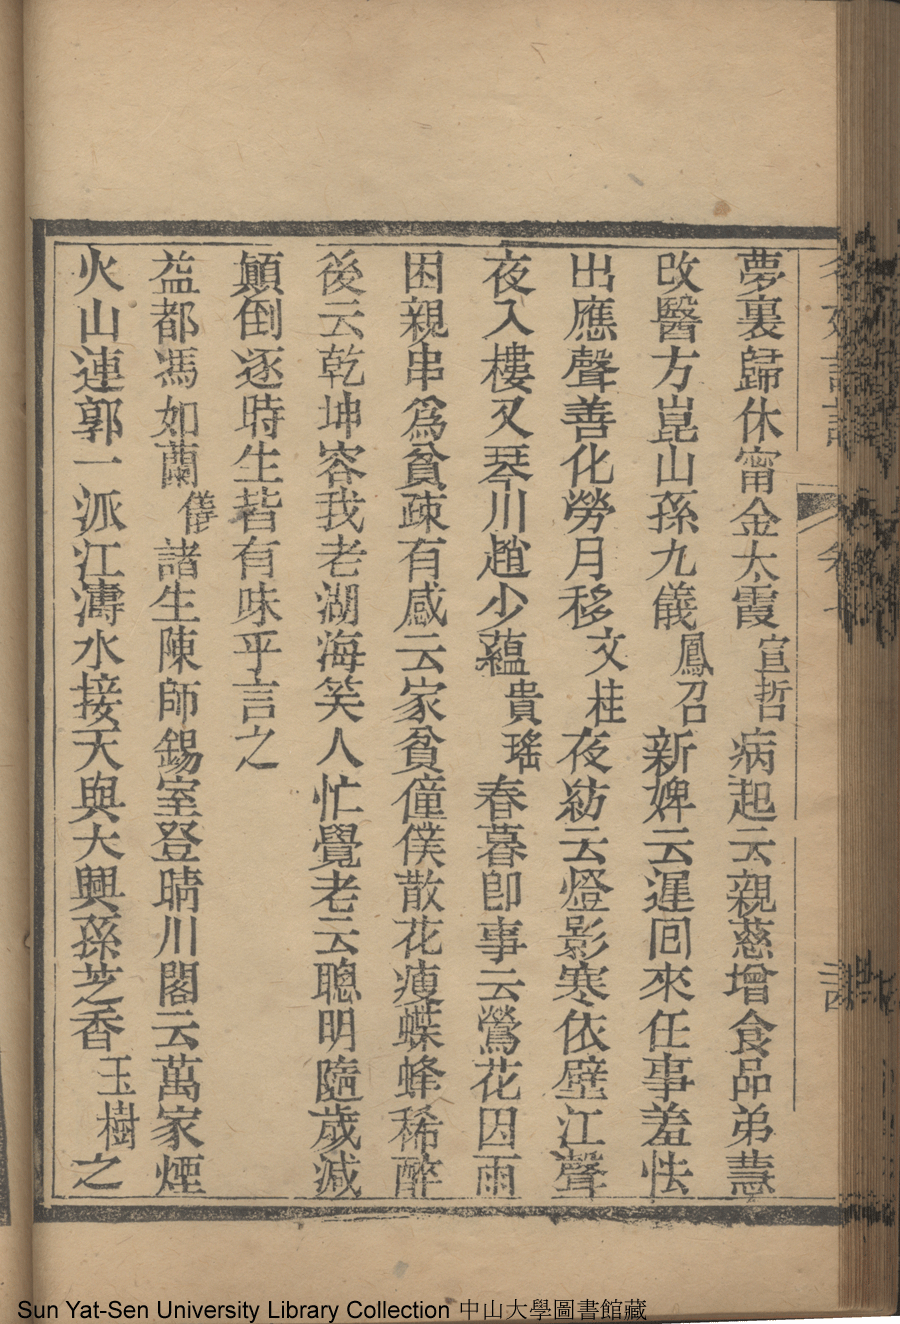 夢裏歸休甯金大霞宣哲病起云親慈增食品弟藎
改醫方崑山孫九儀鳳召新婢云遲囘來任事羞怯
出應聲善化勞月移文桂夜紡云燈影寒依壁江聲
夜入樓又琴川趙少蘊貴瑤春暮卽事云鶯花因雨
困親串爲貧疎有感云家貧僮僕散花瘦蝶蜂稀醉
後云乾坤容我老湖海笑人忙覺老云聰明隨歲減
顛倒逐時生皆有味乎言之
益都馮如蘭諸生陳師錫室登晴川閣云萬家煙
火山連郭一派江濤水接天與大興孫芝香玉樹之
Sun Yat-Sen University Library Collection 中山大學圖書館藏